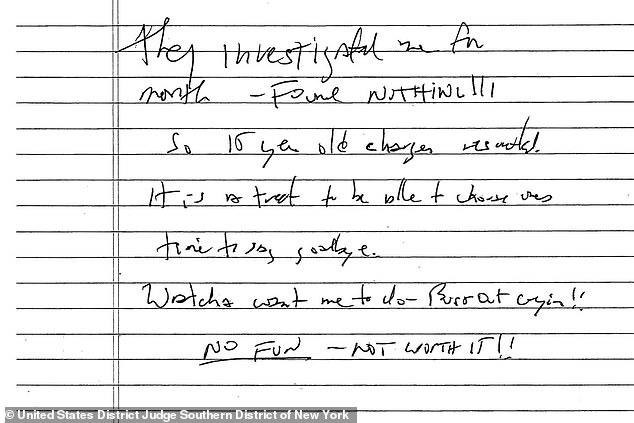 They investigated me for
month – Found NOTHING!!!
So 15 year old charges resulted.
It is a treat to be able to choose ones
time to say goodbye.
Watcha want me to do – Burst out cryin!!
NO FUN – NOT WORTH IT!!
© United States District Judge Southern District of New York